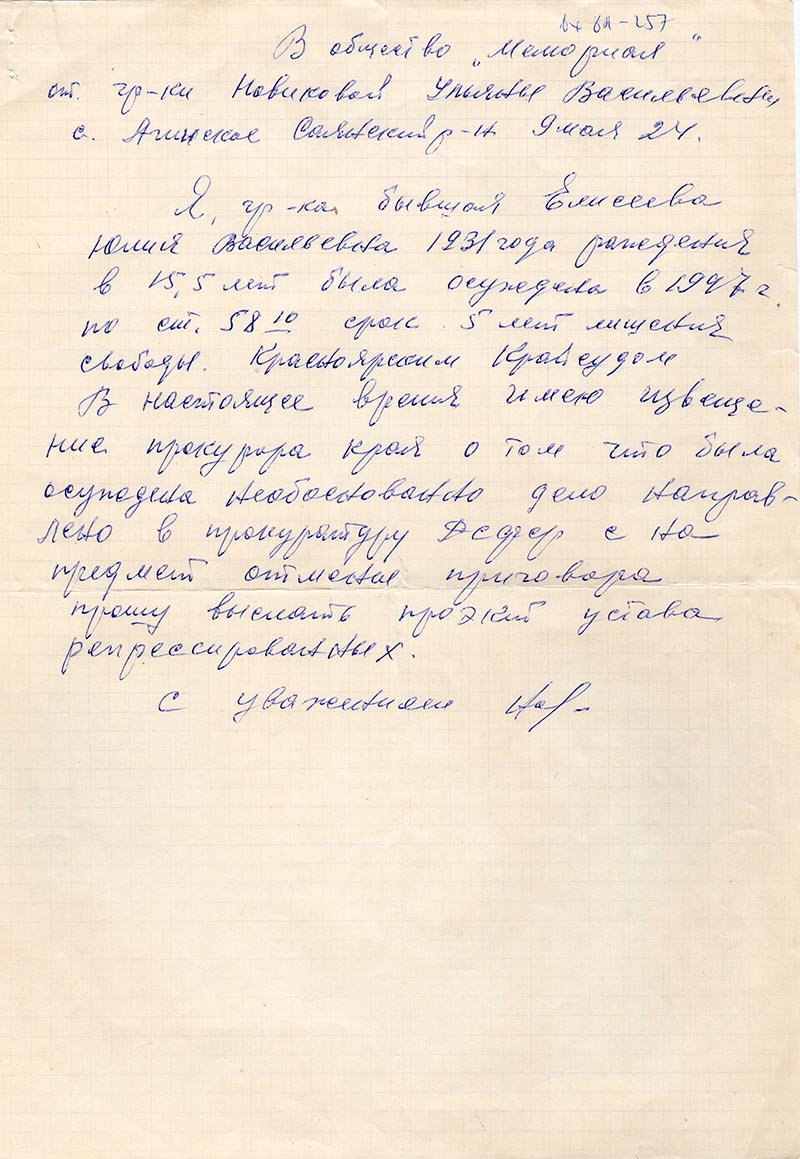 вх 61-257
В общество „Мемориал"
от гр-ки Новиковой Ульяны Васильевны
с. Агинское Саянский р-н 9 мая 24.
Я, гр-ка бывшая Елисеева
Юлия Васильевна 1931 года рождения
в 15,5 лет была осуждена в 1947 г.
по ст. 58 10 срок 5 лет лишения
свободы. Красноярским Крайсудом
В настоящее время имею извеще-
ние прокурора края о том что была
осуждена необосновано дело направ-
лено в прокуратуру РСФСР с на
предмет отмение приговора
прошу выслать проэкт устава
репрессированных.
С уважением Нов-